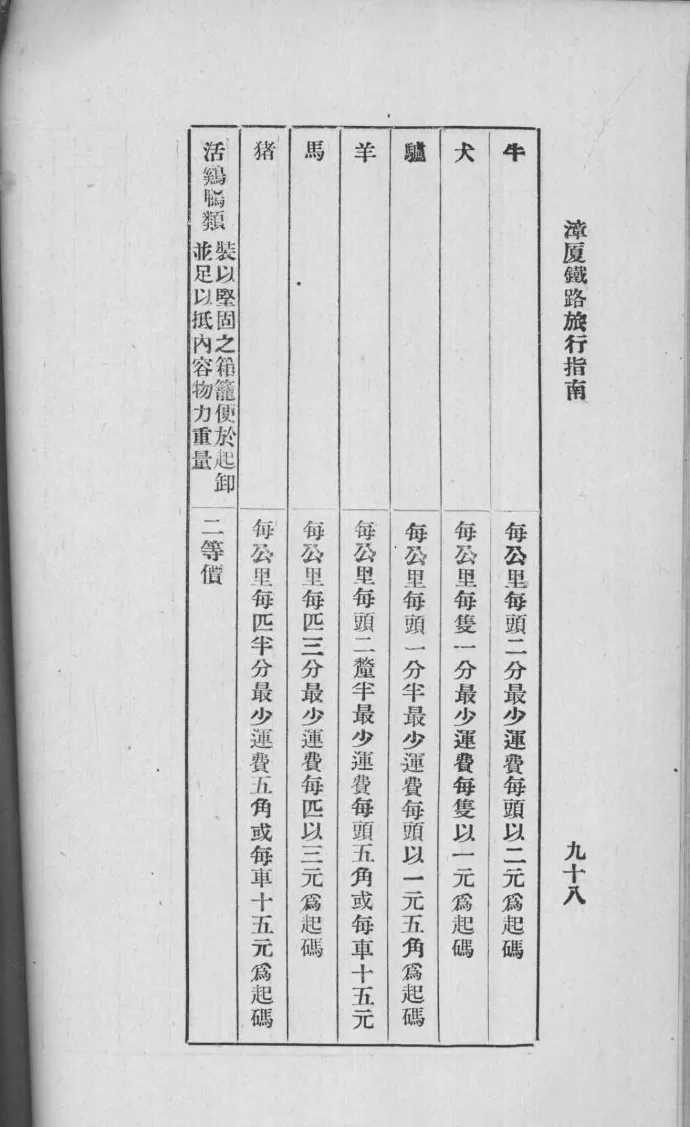 漳厦鐵路旅行指南
九十八
牛
每公里每頭二分最少運費每頭以二元爲起碼
犬
每公里每隻一分最少運費每隻以一元爲起碼
驢
每公里每頭一分半最少運費每頭以一元五角爲起碼
羊
每公里每頭二釐半最少運費每頭五角或每車十五元
馬
每公里每匹三分最少運費每匹以三元爲起碼
猪
每公里每匹半分最少運費五角或每車十五元爲起碼
活鷄鴨類
裝以堅固之箱籠便於起卸
並足以抵內容物力重量
二等價